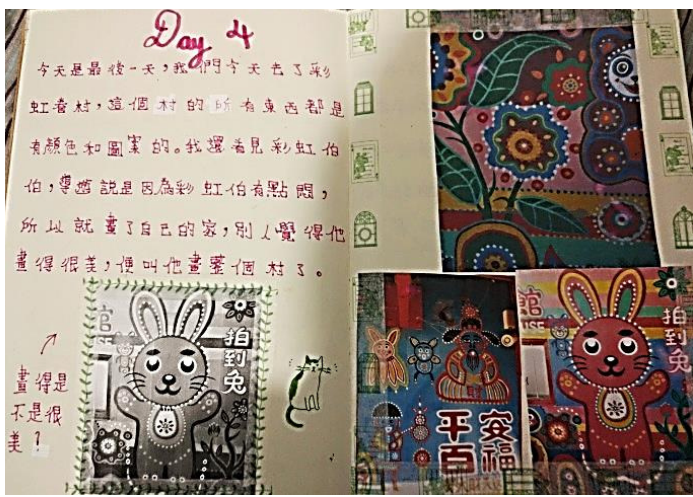 Day 4
今天是最後一天，我們今天去了彩
虹眷村，這個村的所有東西都是
有顏色和圖案的。我還看見彩虹伯
伯，導遊說是因為彩虹伯有點悶，
所以就畫了自己的家，別人覺得他
畫得很美，便叫他畫整個村了。
畫得是
不是很
美？
館
拍到兔
平安
百福
館
拍到兔